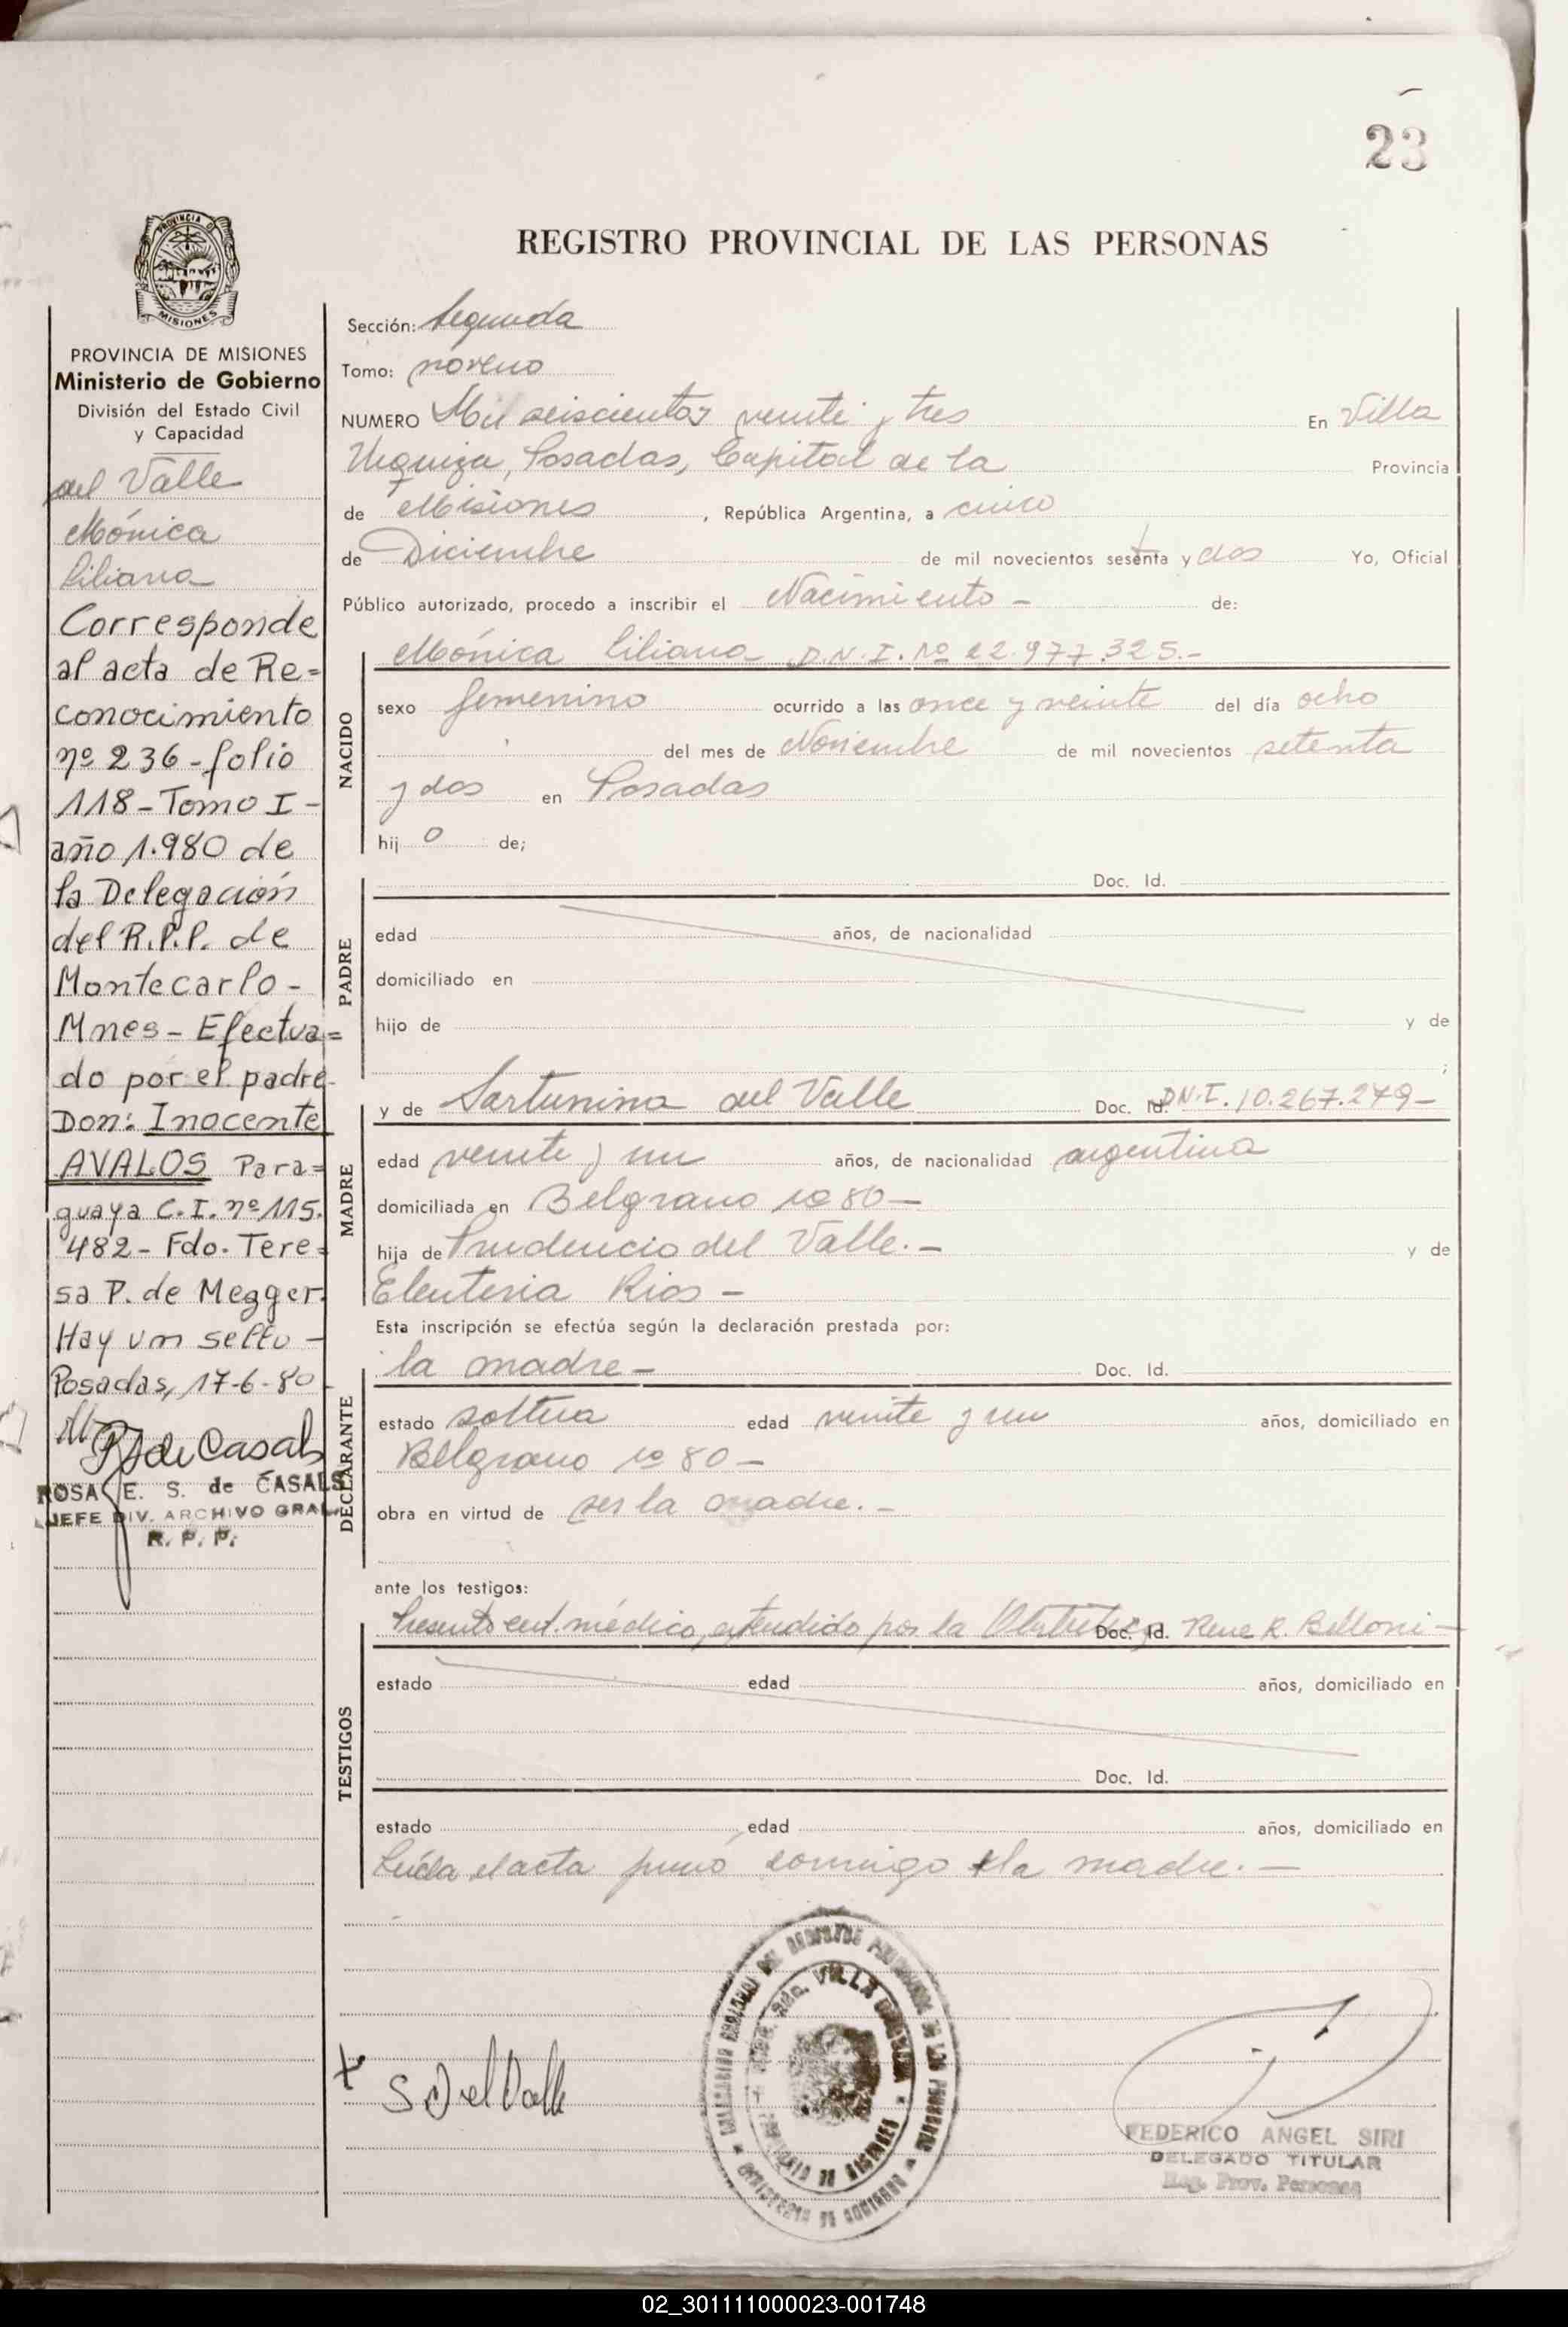 23
REGISTRO PROVINCIAL DE LAS PERSONAS
PROVINCIA DE MISIONES
Ministerio de Gobierno
División del Estado Civil
y Capacidad
del Valle
Mónica
Liliana
Corresponde
al acta de Re=
conocimiento
nº 236 - folio
118 - Tomo I -
año 1.980 de
la Delegación
del R.P.P. de
Montecarlo -
Mnes - Efectua=
do por el padre
Don: Inocente
AVALOS Para=
guaya C.I. nº 115.
482 - Fdo. Tere=
sa P. de Megger.
Hay un sello -
Posadas, 17-6-80
de Casals
ROSA E. S. de CASALS
JEFE DIV. ARCHIVO GRAL.
R. P. P.
Sección: Segunda
Tomo: noveno
NUMERO Mil seiscientos veinte y tres En Villa
Urquiza, Posadas, Capital de la Provincia
de Misiones, República Argentina, a cinco
de Diciembre de mil novecientos setenta y dos Yo, Oficial
Público autorizado, procedo a inscribir el Nacimiento - de:
NACIDO
Mónica Liliana D.N.I. Nº 22.977.325.-
sexo femenino ocurrido a las once y veinte del día ocho
del mes de Noviembre de mil novecientos setenta
y dos en Posadas
hijo de;
PADRE
Doc. Id.
edad años, de nacionalidad
domiciliado en
hijo de y de
;
MADRE
y de Sartunina del Valle Doc. Id. D.N.I. 10.267.279-
edad veinte y un años, de nacionalidad argentina
domiciliada en Belgrano nº 80 -
hija de Prudencio del Valle. - y de
Eleuteria Rios -
Esta inscripción se efectúa según la declaración prestada por:
DECLARANTE
la madre - Doc. Id.
estado soltera edad veinte y un años, domiciliado en
Belgrano nº 80 -
obra en virtud de ser la madre. -
ante los testigos:
TESTIGOS
Presento cert. médico, extendido por la Doc. Id. Rene R. Belloni -
estado edad años, domiciliado en
Doc. Id.
estado edad años, domiciliado en
Leída el acta firmó conmigo la madre. -
S Del Valle
FEDERICO ANGEL SIRI
DELEGADO TITULAR
Reg. Prov. Personas
02_301111000023-001748